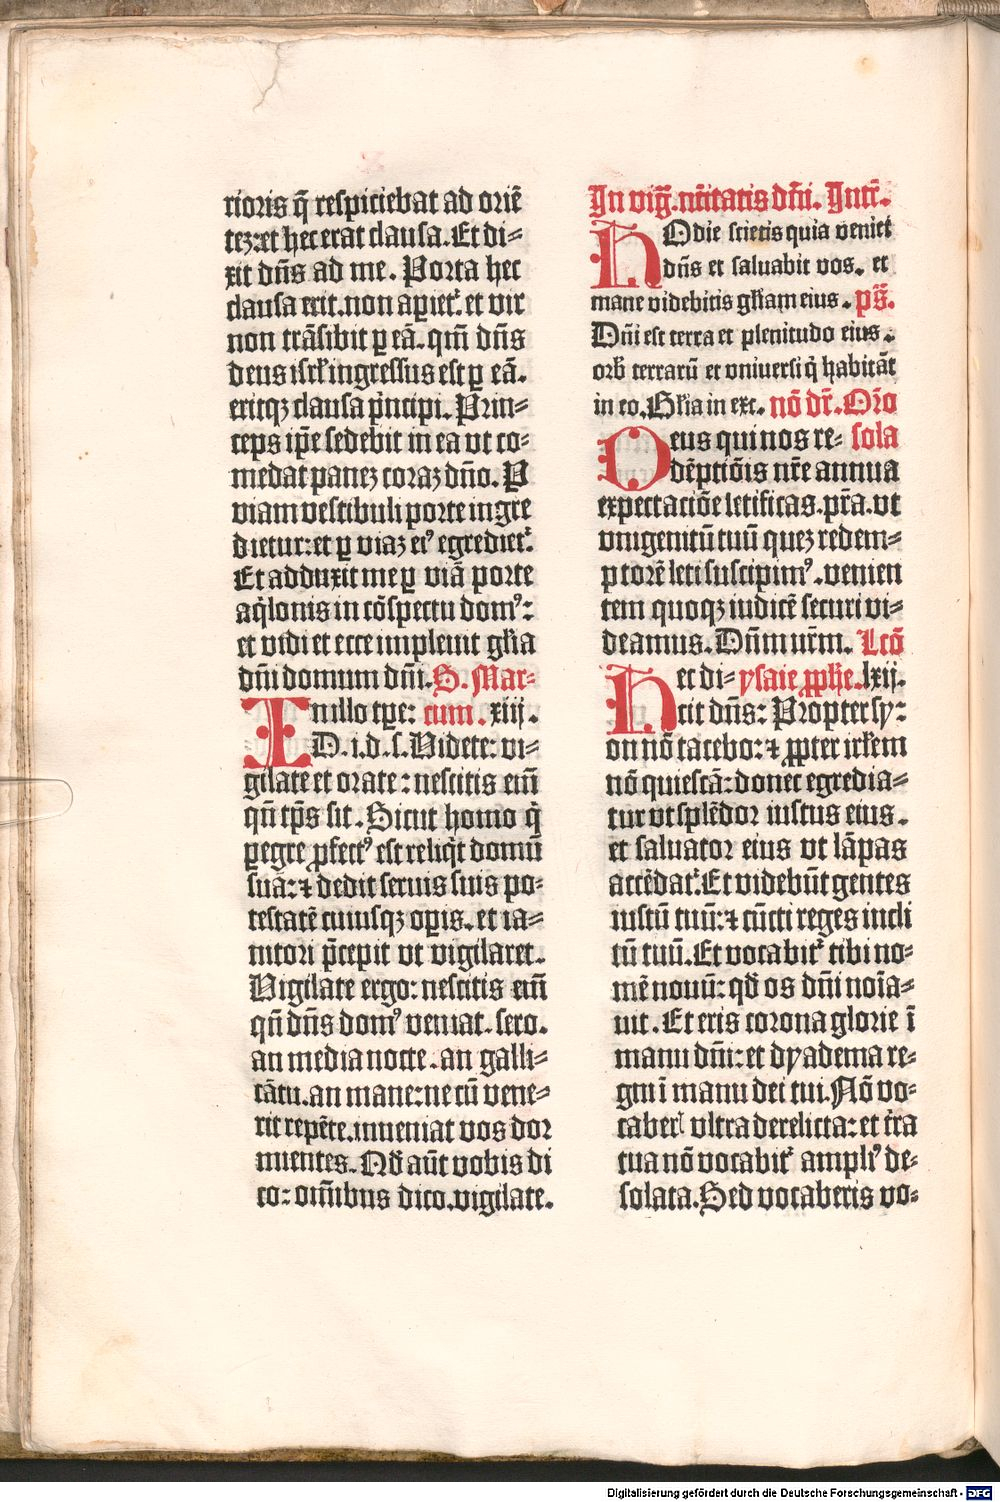 rioris q̃ respiciebat ad oriẽ
tez: et hec erat clausa. Et di⸗
xit dñs ad me. Porta hec
clausa erit. non apiet᷑. et vir
non trãsibit ꝑ eã. qm̃ dñs
deus isrl̃ ingressus est ꝑ eã.
eritqꝫ clausa p̃ncipi. Prin⸗
ceps ip̃e sedebit in ea vt co⸗
medat panez coraz dño. P
viam vestibuli porte ingre
dietur: et ꝑ viaz eiꝰ egrediet᷑.
Et adduxit me ꝑ viã porte
aq̇lonis in cõspectu domꝰ:
et vidi et ecce impleuit gl̃ia
dñi domum dñi. S. Mar⸗
In illo tꝑe: cum. xiij.
D. i. d. s. Videte: vi⸗
gilate et orate: nescitis eñi
qñ tp̃s sit. Sicut homo q̇
ꝑegre ꝓfectꝰ est reliq̇t domũ
suã: ⁊ dedit seruis suis po⸗
testatẽ cuiusqꝫ oꝑis. et ia⸗
nitori p̃cepit vt vigilaret.
Vigilate ergo: nescitis eñi
qñ dñs domꝰ veniat. sero.
an media nocte. an galli⸗
cãtu. an mane: ne cũ vene⸗
rit repẽte. inueniat vos dor
mientes. Qḋ aũt vobis di
co: om̃ibus dico. vigilate.
In vig̃. nr̃itatis dñi. Intr̃.
HOdie scietis quia veniet
dñs et saluabit vos. et
mane videbitis gl̃iam eius. ps̃.
Dñi est terra et plenitudo eius.
orb̃ terrarũ et vniuersi q̇ habitãt
in eo. Gl̃ia in exc. nõ dr̃. Or̃o
Deus qui nos re⸗ sola
dẽptiõis nr̃e annua
expectaciõe letificas. pr̃a. vt
vnigenitũ tuũ quez redem⸗
ptorẽ leti suscipimꝰ. venien
tem quoqꝫ iudicẽ securi vi⸗
deamus. Dñm nr̃m. Lcõ
Hec di⸗ ysaie ꝓph̃e. lxij.
cit dñs: Propter sy⸗
on nõ tacebo: ⁊ ꝓpter irl̃em
nõ quiescã: donec egredia⸗
tur vt splẽdor iustus eius.
et saluator eius vt lãpas
accẽdat᷑. Et videbũt gentes
iustũ tuũ: ⁊ cũcti reges incli
tũ tuũ. Et vocabit᷑ tibi no⸗
mẽ nouũ: qḋ os dñi noĩa⸗
uit. Et eris corona glorie ĩ
manu dñi: et dyadema re⸗
gni ĩ manu dei tui. Nõ vo⸗
caberꝭ vltra derelicta: et t̃ra
tua nõ vocabit᷑ ampliꝰ de⸗
solata. Sed vocaberis vo⸗
Digitalisierung gefördert durch die Deutsche Forschungsgemeinschaft - DFG